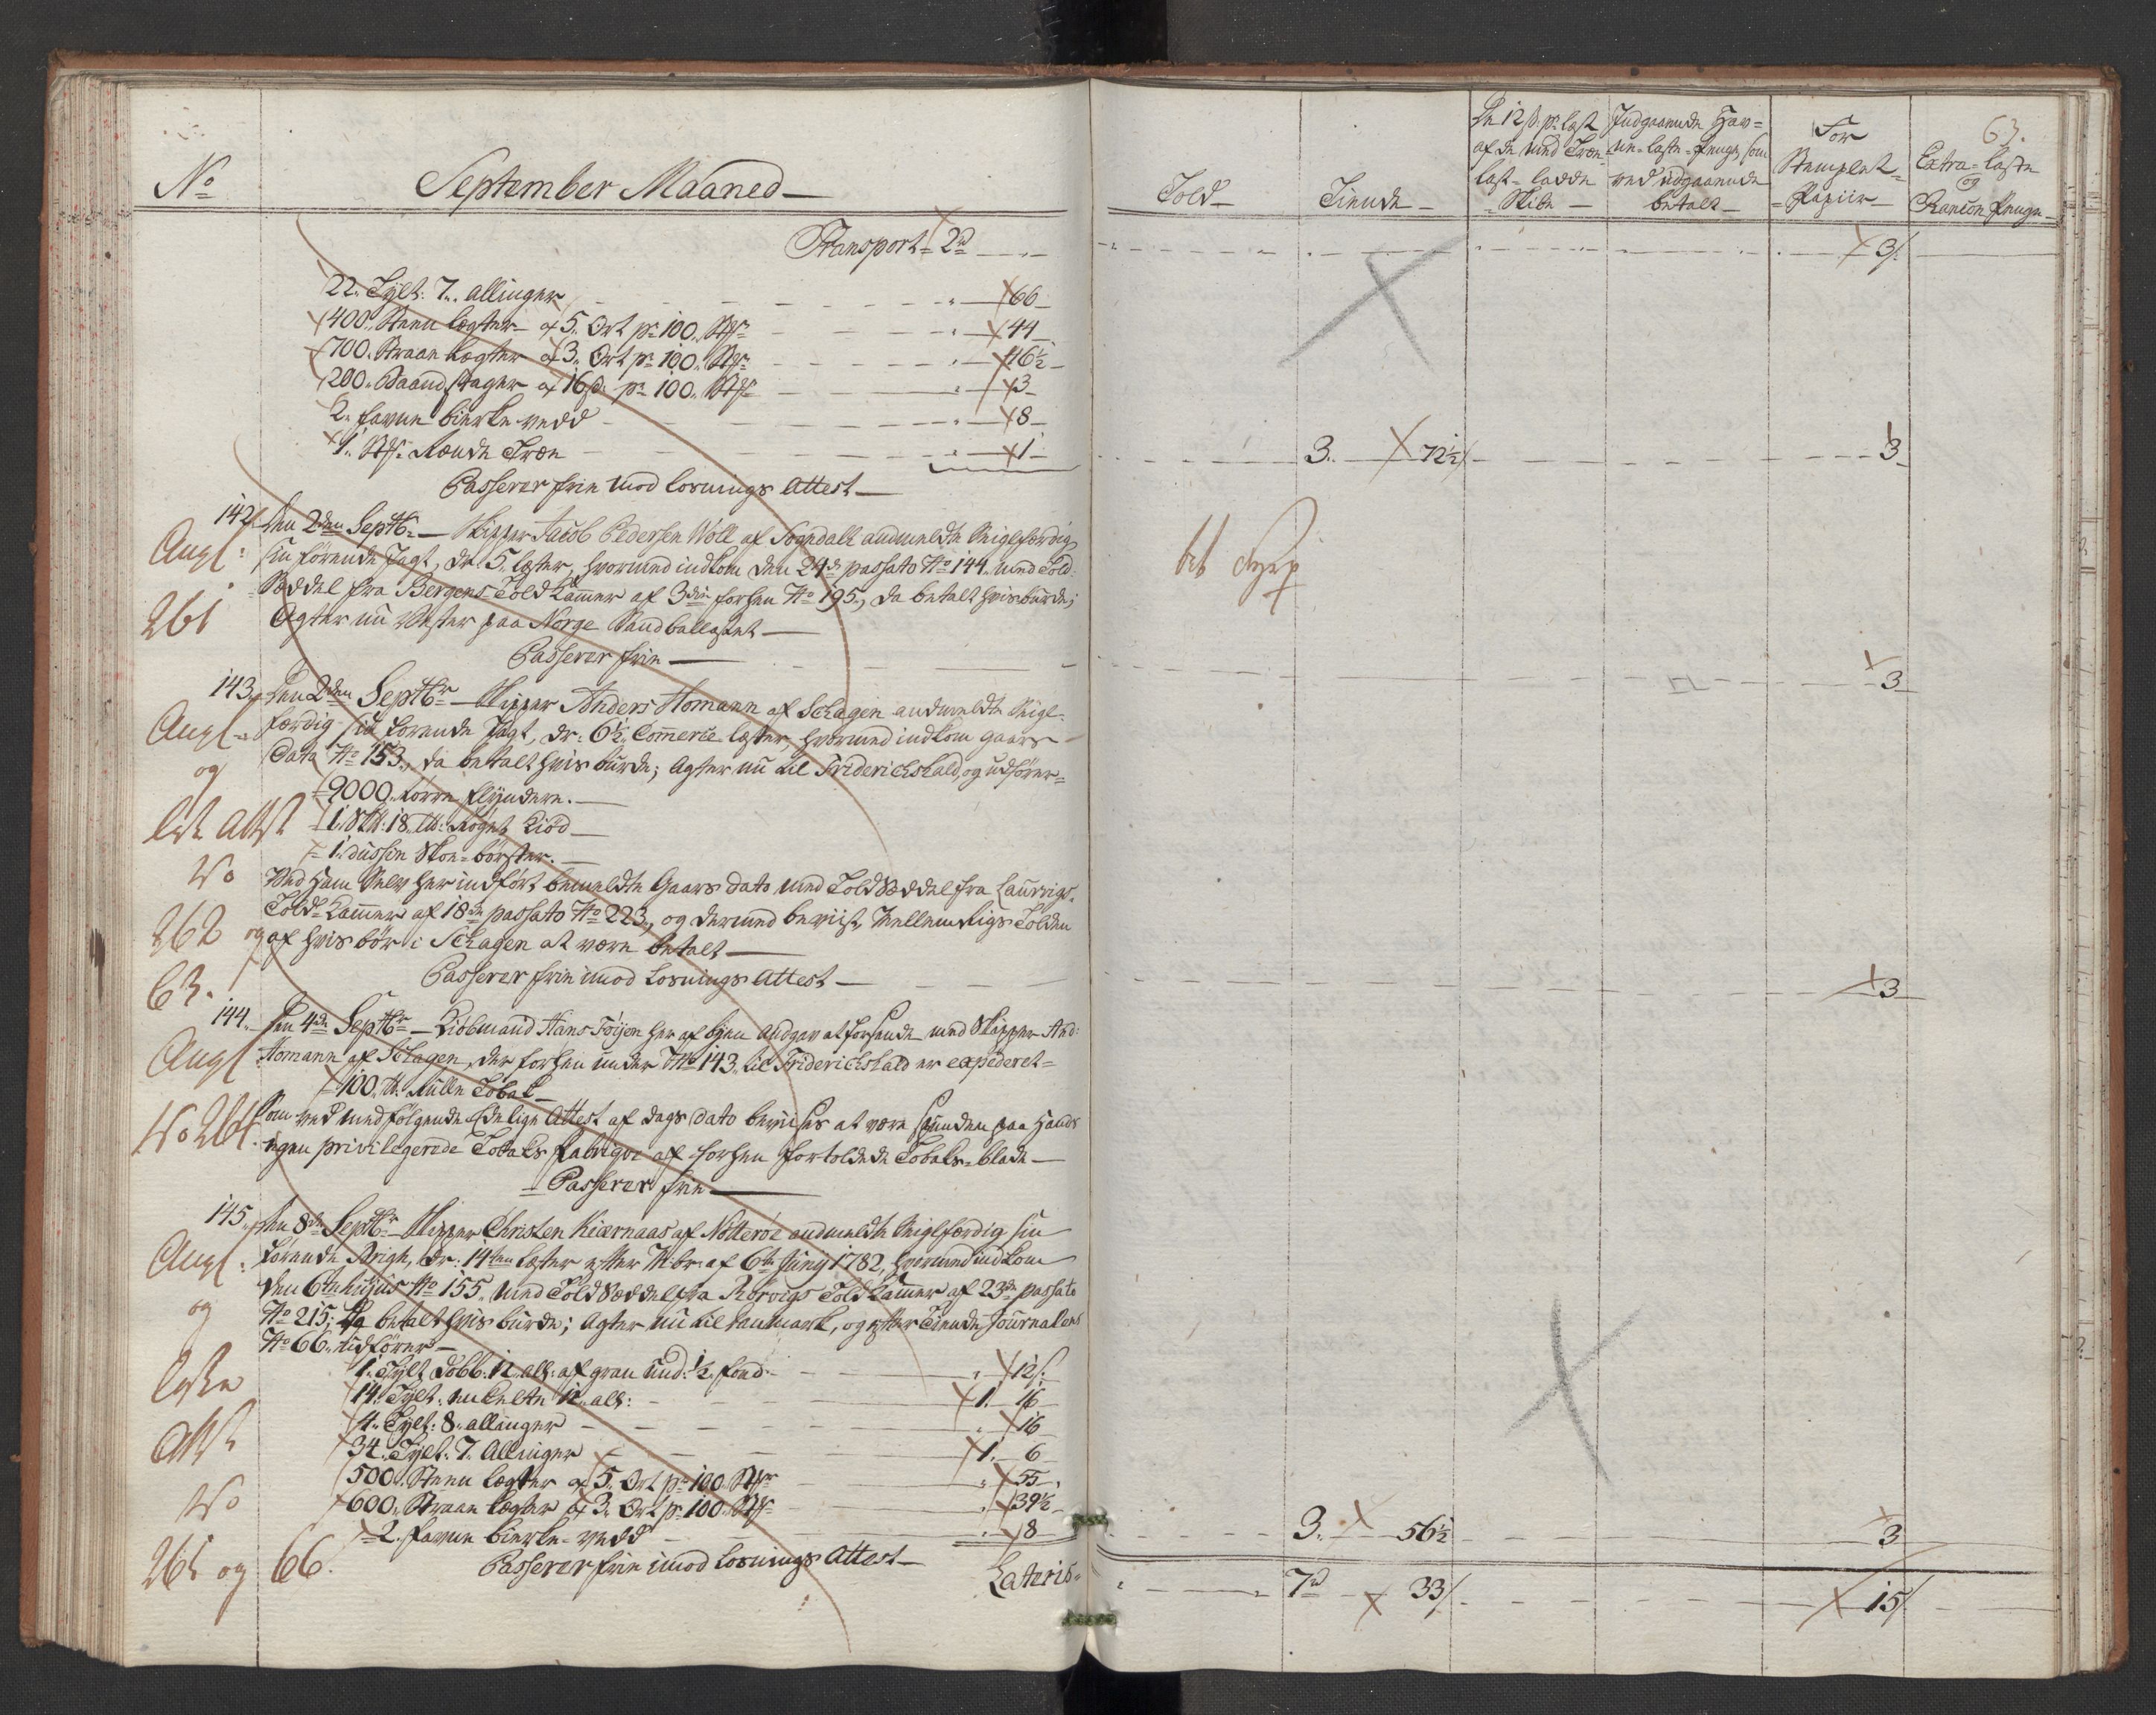 No
September Maaned
Transport 2rd
22. Tylt: 7. allinger 66
400. Steen lægter af 5. Ort pr 100. Stk: 44
700. Straae lægter af 3. Ort pr 100. Stk: 46½
200. Baandstager af 16 s: pr 100. Stk: 3
2. favne birke vedd 8
1. Stk: Rænde Træe 1
Passerer frie mod losnings Attest
142. Den 2den Septbr: Skipper Jacob Pedersen Woll af Sogndall anmeldte Seiglfærdig
Angl: sin førende Jagt, dr: 5. læster, hvormed indkom den 24de passato No 144. med Told-
Seddel fra Bergens Told Kammer af 3die forhen No 195., da betalt hvis burde;
261 Agter nu Vester paa Norge Sandballastet
Passerer frie
143. Den 2den Septbr Skipper Anders Homann af Schagen anmeldte Seigl-
Angl: færdig sin førende Jagt, dr: 6½ Commerce læster, hvormed indkom gaars
og Dato No 153., da betalt hvis burde; Agter nu til Friderichshald, og udfører
9000. tørre flyndere.
Attst 1. Slb: 18. lb: Røget Kiød
1. dussin Skoe-børster.
No Ved ham Selv her indført bemeldte Gaars Dato med Told Seddel fra Laurvigs
Told Kammer af 18de passato No 223., og dermed beviist, Mellemrigs Tolden
262 og af hvis bør i Schagen at være betalt
63. Passerer frie imod Losnings Attest
144. Den 4de Septbr Kiøbmand Hans Føijen her af byen Angav at forsende med Skipper And:
Angl: Homann af Schagen, der forhen under No 143. til Friderichshald er expederet
100. lb: Rulle Tobak
No 264. Som ved medfølgende Edelige Attest af dags Dato bevises at være spunden paa Hands
egen privilegerede Tobaks Fabrique af forhen fortoldede Tobaks-blade
Passerer frie
145. Den 8de Septbr Skipper Christen Kiærnaas af Nøtterøe anmeldte Seiglfærdig sin
Angl: førende Brigh, Dr: 14ten læster efter M:br: af 6te Junij 1782, hvormed indkom
og den 6te hujus No 155. med Told Seddel fra Rørvigs Told Kammer af 23de passato
No 215; da betalt hvis burde; Agter nu til Danmark, og efter Tiende Journalens
No 66. udfører
1. Tylt dobb: 12. all: af gran und: ½ foed 12 s:
14. Tylt: enkelte 12. all: 1. 16
Attst 4. Tylt: 8. allinger 16
34. Tylt: 7. Allinger 1. 6
500. Steen lægter af 5. Ort pr 100. Stk: 55
No 600. Straae lægter af 3. Ort pr 100. Stk: 39½
2. favne birke-vedd 8
265 og 66. Passerer frie imod losnings Attest
Lateris
63.
Told
Tiende
De 12 s: pr læst af de med Træ-last ladde Skibe
Indgaaende Hav-ne-læste-penge, som ved udgaaende betalt
For Stemplet Papiir
Extra-læste og Rancon penge
3 s:
3. 72½ 3
3
3
3. 56½ 3
7rd 33 s: 15 s: